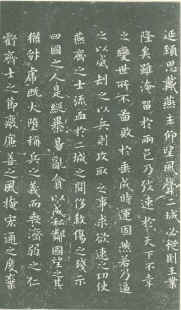 延頸思戴燕主仰望風聲二城必從則王業
隆矣雖淹留於兩邑乃致速於天下不幸
之變世所不啚敗於垂成時運固然若乃逼
之以威劫之以兵則攻取之事求欲速之功使
燕齊之士流血於二城之間侈殺傷之殘示
四國之人是縱暴易亂貪以成私鄰國望之其
猶豺虎既大墮稱兵之義而喪濟弱之仁
虧齊士之節廢廉善之風掩宏通之度棄